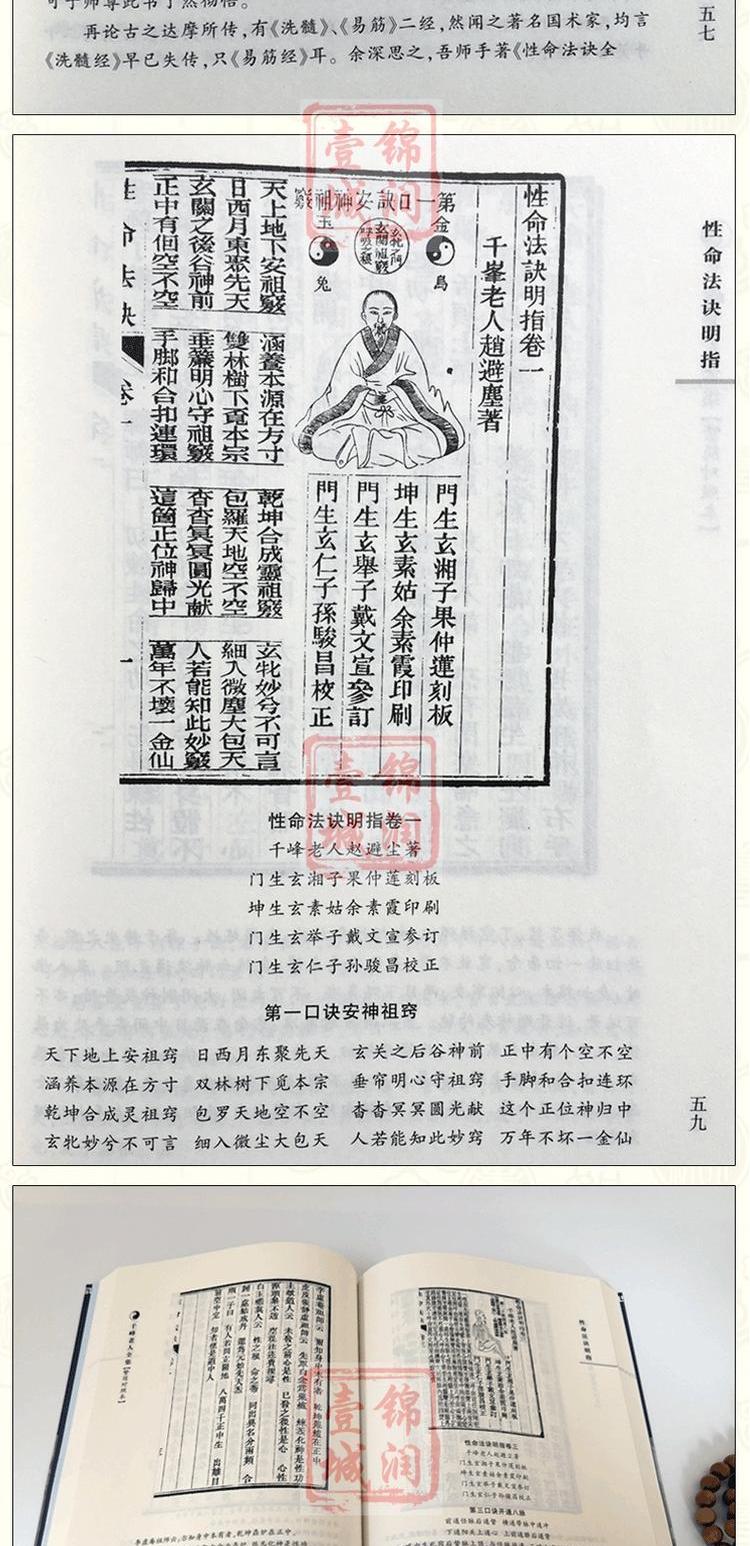 可于师尊此书了然彻悟。
再论古之达摩所传，有《洗髓》、《易筋》二经，然闻之著名国术家，均言
《洗髓经》早已失传，只《易筋经》耳。余深思之，吾师手著《性命法诀全
五七
性命法诀明指
性命法訣明指卷一
千峯老人趙避塵著
第一口訣安神祖竅
金烏
玉兔
門生玄湘子果仲蓮刻板
坤生玄素姑余素霞印刷
門生玄舉子戴文宣參訂
門生玄仁子孫駿昌校正
天上地下安祖竅 涵養本源在方寸 乾坤合成靈祖竅 玄牝妙兮不可言
日西月東聚先天 雙林樹下覔本宗 包羅天地空不空 細入微塵大包天
玄關之後谷神前 垂簾明心守祖竅 杳杳冥冥圓光献 人若能知此妙竅
正中有個空不空 手脚和合扣連環 這箇正位神歸中 萬年不壞一金仙
性命法訣 卷一
一
性命法诀明指卷一
千峰老人赵避尘著
门生玄湘子果仲莲刻板
坤生玄素姑余素霞印刷
门生玄举子戴文宣参订
门生玄仁子孙骏昌校正
第一口诀安神祖窍
天下地上安祖窍 日西月东聚先天 玄关之后谷神前 正中有个空不空
涵养本源在方寸 双林树下觅本宗 垂帘明心守祖窍 手脚和合扣连环
乾坤合成灵祖窍 包罗天地空不空 杳杳冥冥圆光献 这个正位神归中
玄牝妙兮不可言 细入微尘大包天 人若能知此妙窍 万年不坏一金仙
五九
千峰老人全集
性命法诀明指
性命法诀明指卷三
千峰老人赵避尘著
门生玄湘子果仲莲刻板
坤生玄素姑余素霞印刷
门生玄举子戴文宣参订
门生玄仁子孙骏昌校正
第三口诀开通八脉
锦润壹城
锦润壹城
锦润壹城